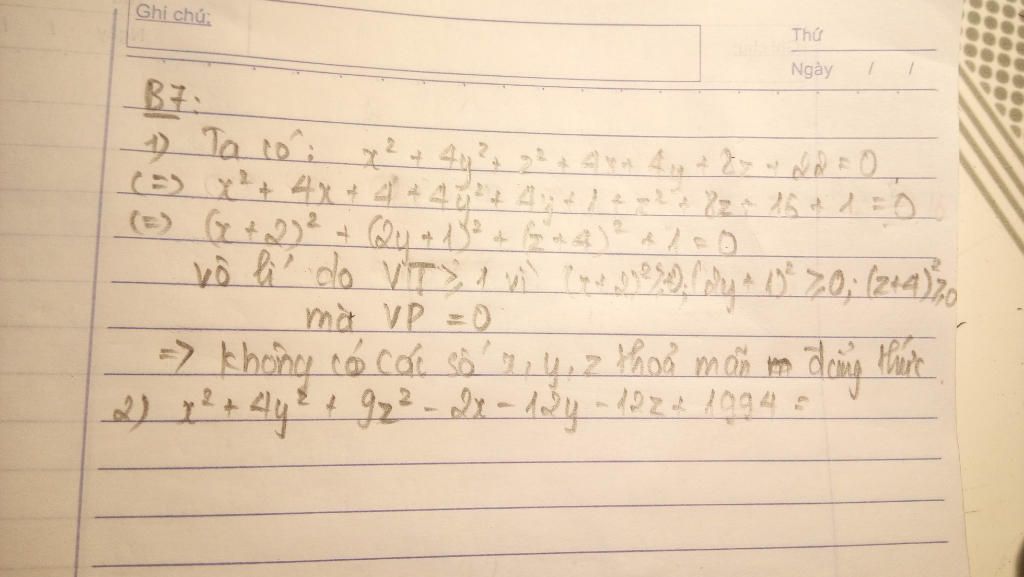 Ghi chú:
Thứ
Ngày / /
B7:
1) Ta có: x² + 4y² + z² + 4x + 4y + 8z + 22 = 0
(=) x² + 4x + 4 + 4y² + 4y + 1 + z² + 8z + 16 + 1 = 0
(=) (x + 2)² + (2y + 1)² + (z + 4)² + 1 = 0
vô lí do VT ≥ 1 vì (x + 2)² ≥ 0; (2y + 1)² ≥ 0; (z+4)² ≥ 0
mà VP = 0
=> không có các số x, y, z thoả mãn đẳng thức
2) x² + 4y² + 9z² - 2x - 12y - 12z + 1994 =